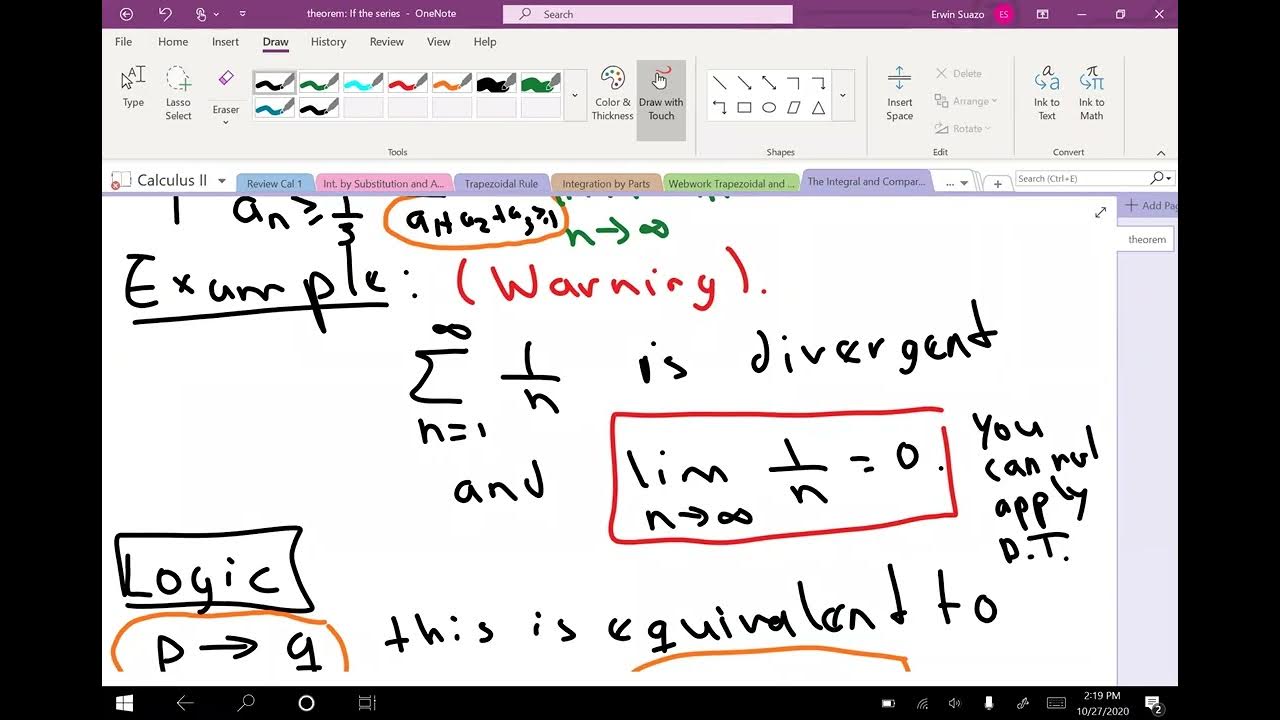 theorem: If the series - OneNote
Search
Erwin Suazo
ES
File Home Insert Draw History Review View Help
Type
Lasso Select
Eraser
Color & Thickness
Draw with Touch
Insert Space
Delete
Arrange
Rotate
Ink to Text
Ink to Math
Tools
Shapes
Edit
Convert
Calculus II
Review Cal 1
Int. by Substitution and A...
Trapezoidal Rule
Integration by Parts
Webwork Trapezoidal and ...
The Integral and Compar...
...
Search (Ctrl+E)
Add Pag
theorem
aₙ ≥ 1/3
n → ∞
Example: (Warning).
∞
∑ 1/n is divergent
n=1
and
lim 1/n = 0.
n→∞
You
can not
apply
D.T.
Logic
p → q this is equivalent to
2:19 PM
10/27/2020
2